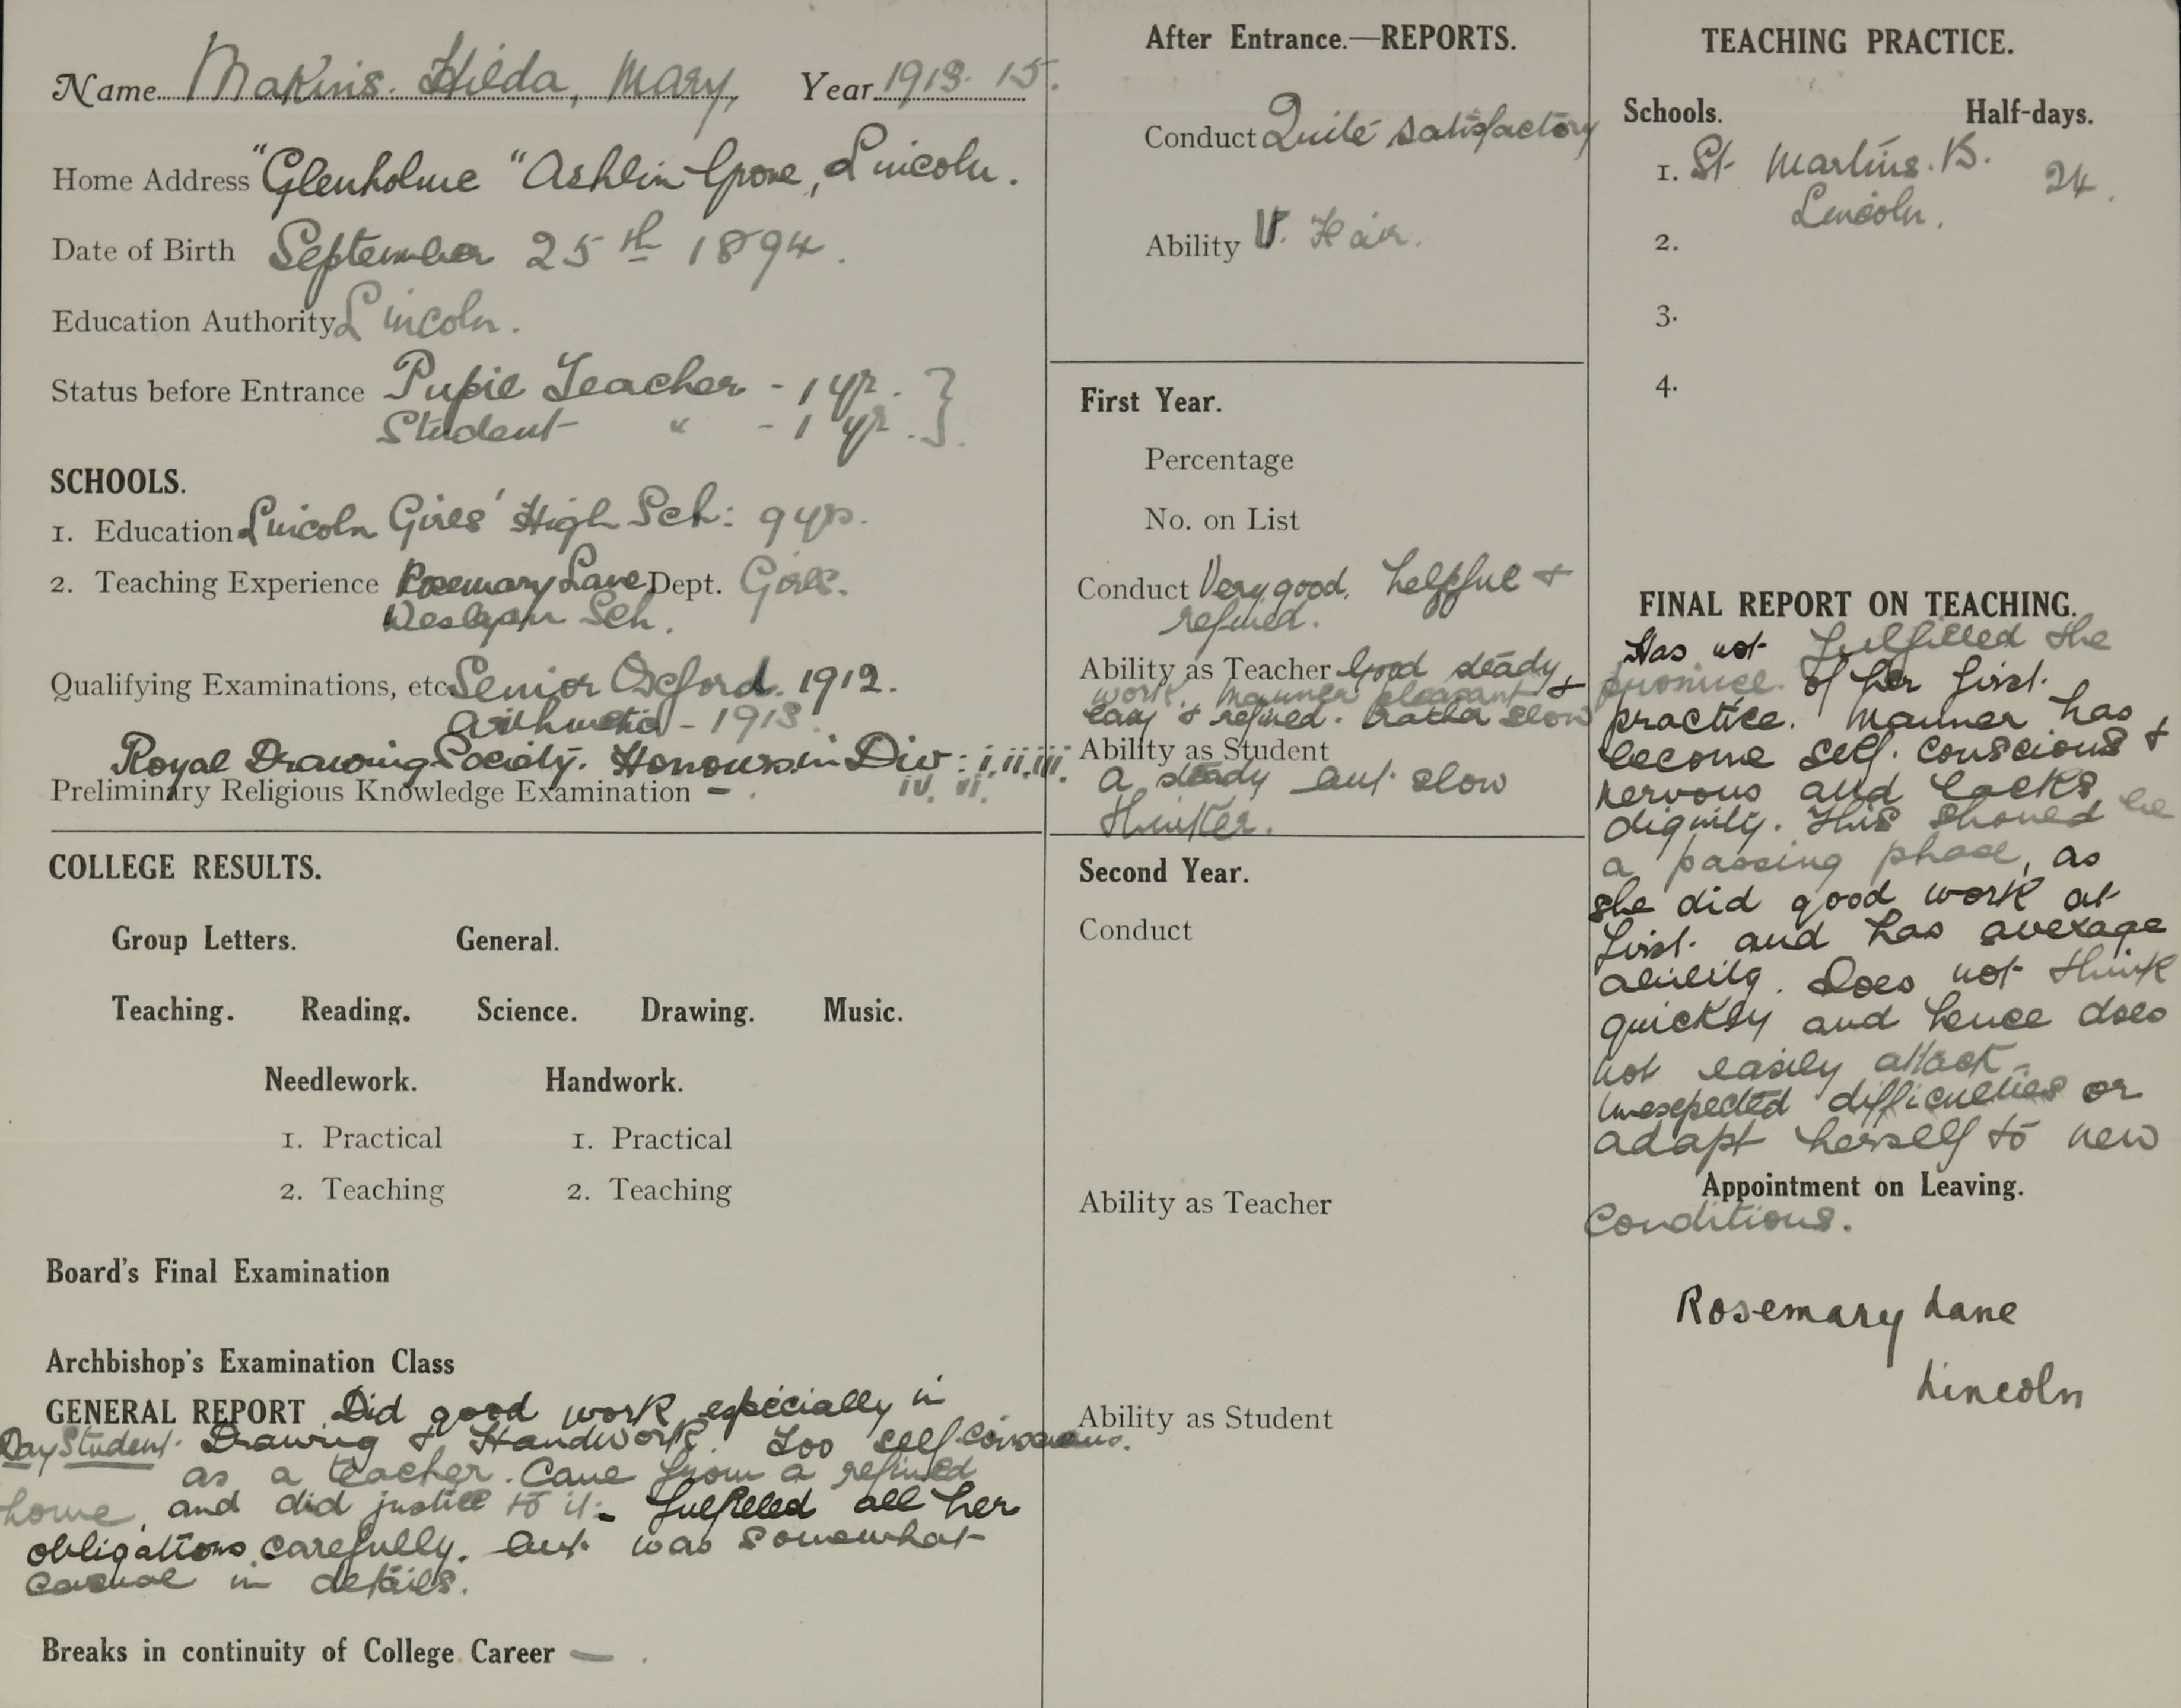 Name Makins. Hilda, Mary, Year 1913. 15.
Home Address "Glenholme" Ashlin Grove, Lincoln.
Date of Birth September 25th 1894.
Education Authority Lincoln.
Status before Entrance Pupil Teacher - 1 yr. }
Student " - 1 yr. }.
SCHOOLS.
1. Education Lincoln Girls' High Sch: 9 yrs.
2. Teaching Experience Rosemary Lane Dept. Girls.
Wesleyan Sch.
Qualifying Examinations, etc. Senior Oxford. 1912.
Arithmetic - 1913.
Royal Drawing Society. Honours in Div: i, ii, iii.
iv. vi.
Preliminary Religious Knowledge Examination - .
COLLEGE RESULTS.
Group Letters. General.
Teaching. Reading. Science. Drawing. Music.
Needlework. Handwork.
1. Practical 1. Practical
2. Teaching 2. Teaching
Board's Final Examination
Archbishop's Examination Class
GENERAL REPORT Did good work especially in
Day Student. Drawing & Handwork. Too self-conscious.
as a teacher. Came from a refined
home, and did justice to it. fulfilled all her
obligations carefully. but was somewhat
casual in details.
Breaks in continuity of College Career - .
After Entrance.—REPORTS.
Conduct Quite satisfactory
Ability V. Fair.
First Year.
Percentage
No. on List
Conduct Very good. helpful &
refined.
Ability as Teacher Good steady
work. Manner pleasant &
easy & refined. Rather slow
Ability as Student
A steady but slow
thinker.
Second Year.
Conduct
Ability as Teacher
Ability as Student
TEACHING PRACTICE.
Schools. Half-days.
1. St Martins. B. 24.
Lincoln.
2.
3.
4.
FINAL REPORT ON TEACHING.
Has not fulfilled the
promise of her first
practice. Manner has
become self-conscious &
nervous and lacks
dignity. This should be
a passing phase, as
she did good work at
first and has average
ability. Does not think
quickly and hence does
not easily attack
unexpected difficulties or
adapt herself to new
Appointment on Leaving.
conditions.
Rosemary Lane
Lincoln